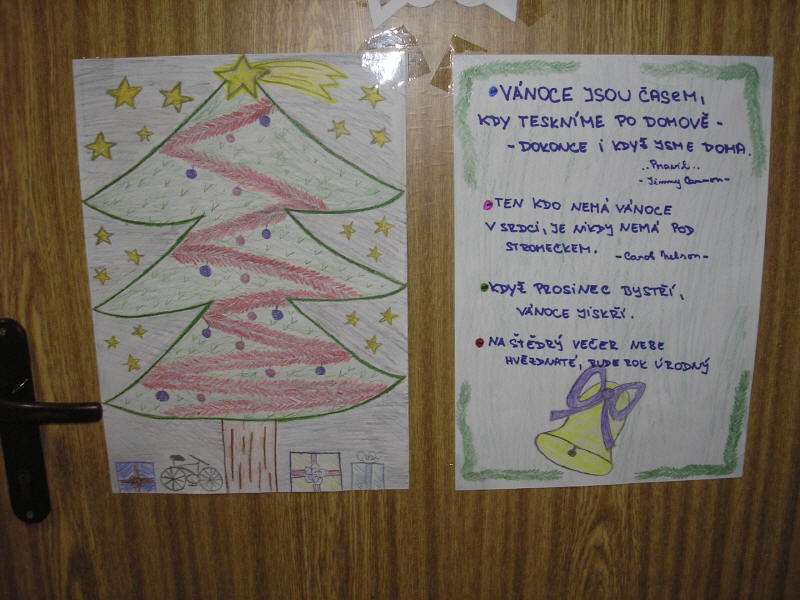 VÁNOCE JSOU ČASEM,
KDY TESKNÍME PO DOMOVĚ -
- DOKONCE I KDYŽ JSME DOMA.
..Pravil..
- Jimmy Cannon -
TEN KDO NEMÁ VÁNOCE
V SRDCÍ, JE NIKDY NEMÁ POD
STROMEČKEM. - Carol Nelson -
KDYŽ PROSINEC BYSTŘÍ,
VÁNOCE JISKŘÍ.
NA ŠTĚDRÝ VEČER NEBE
HVĚZDNATÉ, BUDE ROK ÚRODNÝ